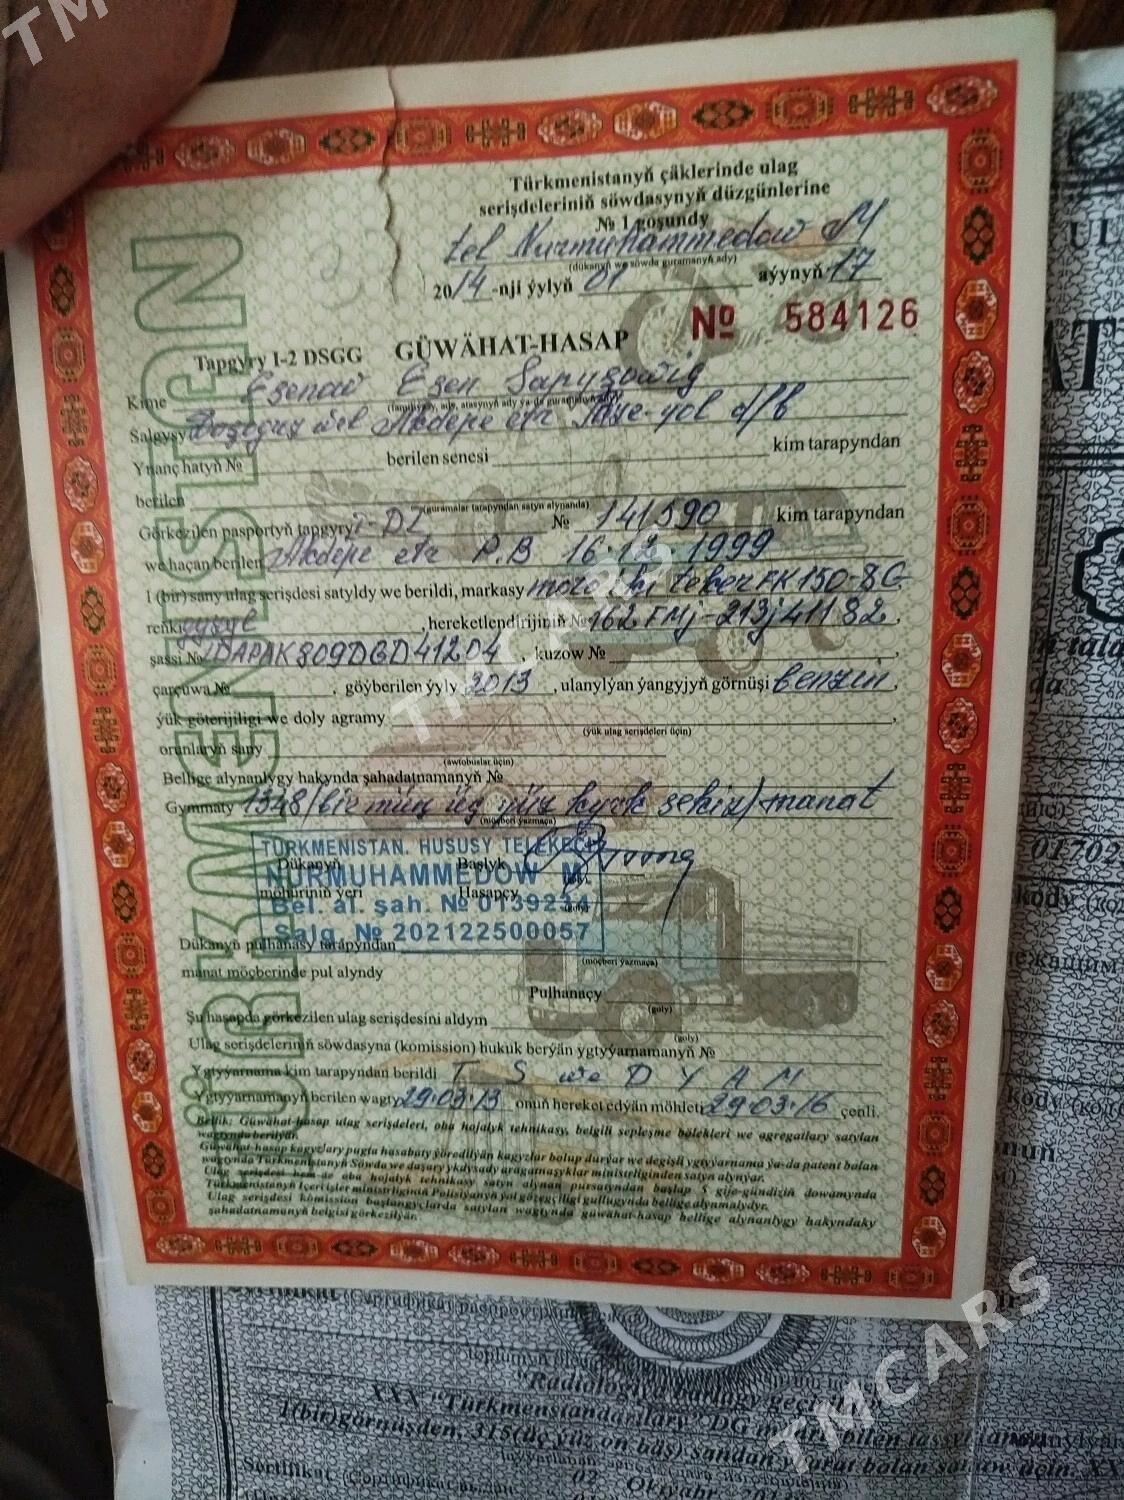 Türkmenistanyň çäklerinde ulag
serişdeleriniň söwdasynyň düzgünlerine
№ 1 goşundy
tel Nurmuhammedow M
(dükanyň we söwda guramanyň ady)
2014-nji ýylyň 01 aýynyň 17
№ 584126
Tapgyry 1-2 DSGG GÜWÄHAT-HASAP
Kime Esenow Esen Sapyşowiç
(familiýasy, ady, atasynyň ady ýa-da guramanyň ady)
Salgysy Daşoguz wel Akdepe etr Täze-ýol d/b
Ynanç hatyň № berilen senesi kim tarapyndan
berilen
(guramalar tarapyndan satyn alynanda)
Görkezilen pasportyň tapgyry I-DZ № 141590 kim tarapyndan
we haçan berilen Akdepe etr P.B 16.12.1999
1 (bir) sany ulag serişdesi satyldy we berildi, markasy iki teker FK 150-8G
reňki gyzyl, hereketlendirijiniň № 162 FMJ-213J41182,
şassi № DAPAK809DGD41204, kuzow №
çarçuwa №, göýberilen ýyly 2013, ulanylýan ýangyjyň görnüşi benzin,
ýük göterijiligi we doly agramy,
(ýük ulag serişdeleri üçin)
orunlaryň sany
(awtobuslar üçin)
Bellige alynanlygy hakynda şahadatnamanyň №
Gymmaty 1348/bir müň üç ýüz kyrk sekiz/manat
(möçberi ýazmaça)
TÜRKMENISTAN. HUSUSY TELEKEÇI
Dükanyň Başlyk
NURMUHAMMEDOW M.
möhüriniň ýeri Hasapçy
(goly)
Bel. al. şah. № 0139234
Salg. № 202122500057
Dükanyň pulhanasy tarapyndan
(möçberi ýazmaça)
manat möçberinde pul alyndy
Pulhanaçy
(goly)
Şu hasapda görkezilen ulag serişdesini aldym
(goly)
Ulag serişdeleriniň söwdasyna (komission) hukuk berýän ygtyýarnamanyň №
Ygtyýarnama kim tarapyndan berildi T S we D Y A M
Ygtyýarnamanyň berilen wagty 29.03.13 onuň hereket edýän möhleti 29.03.16 çenli.
Bellik: Güwähat-hasap ulag serişdeleri, oba hojalyk tehnikasy, belgili sepleşme bölekleri we agregatlary satylan
wagtynda berilýär.
Güwähat-hasap kagyzlary pugta hasabaty ýöredilýän kagyzlar bolup durýar we degişli ygtyýarnama ýa-da patent bolan
wagtynda Türkmenistanyň Söwda we daşary ykdysady aragatnaşyklar ministrliginden satyn alynýar.
Ulag serişdesi hem-de oba hojalyk tehnikasy satyn alynan pursatyndan başlap 5 gije-gündiziň dowamynda
Türkmenistanyň Içeri işler ministrliginiň Polisiýanyň ýol gözegçiligi gullugynda bellige alynmalydyr.
Ulag serişdesi komission başlangyçlarda satylan wagtynda güwähat-hasap bellige alynanlygy hakyndaky
şahadatnamanyň belgisi görkezilýär.
TÜRKMENISTAN
"Radiologiýa barlagy geçirilen"
XXX "Türkmenstandartlary" DG
1(bir)görnüşden, 315(üç ýüz on bäş) sandan ybarat bolan
Sertifikat
02 Oktýabr
TMCARS
TMCARS